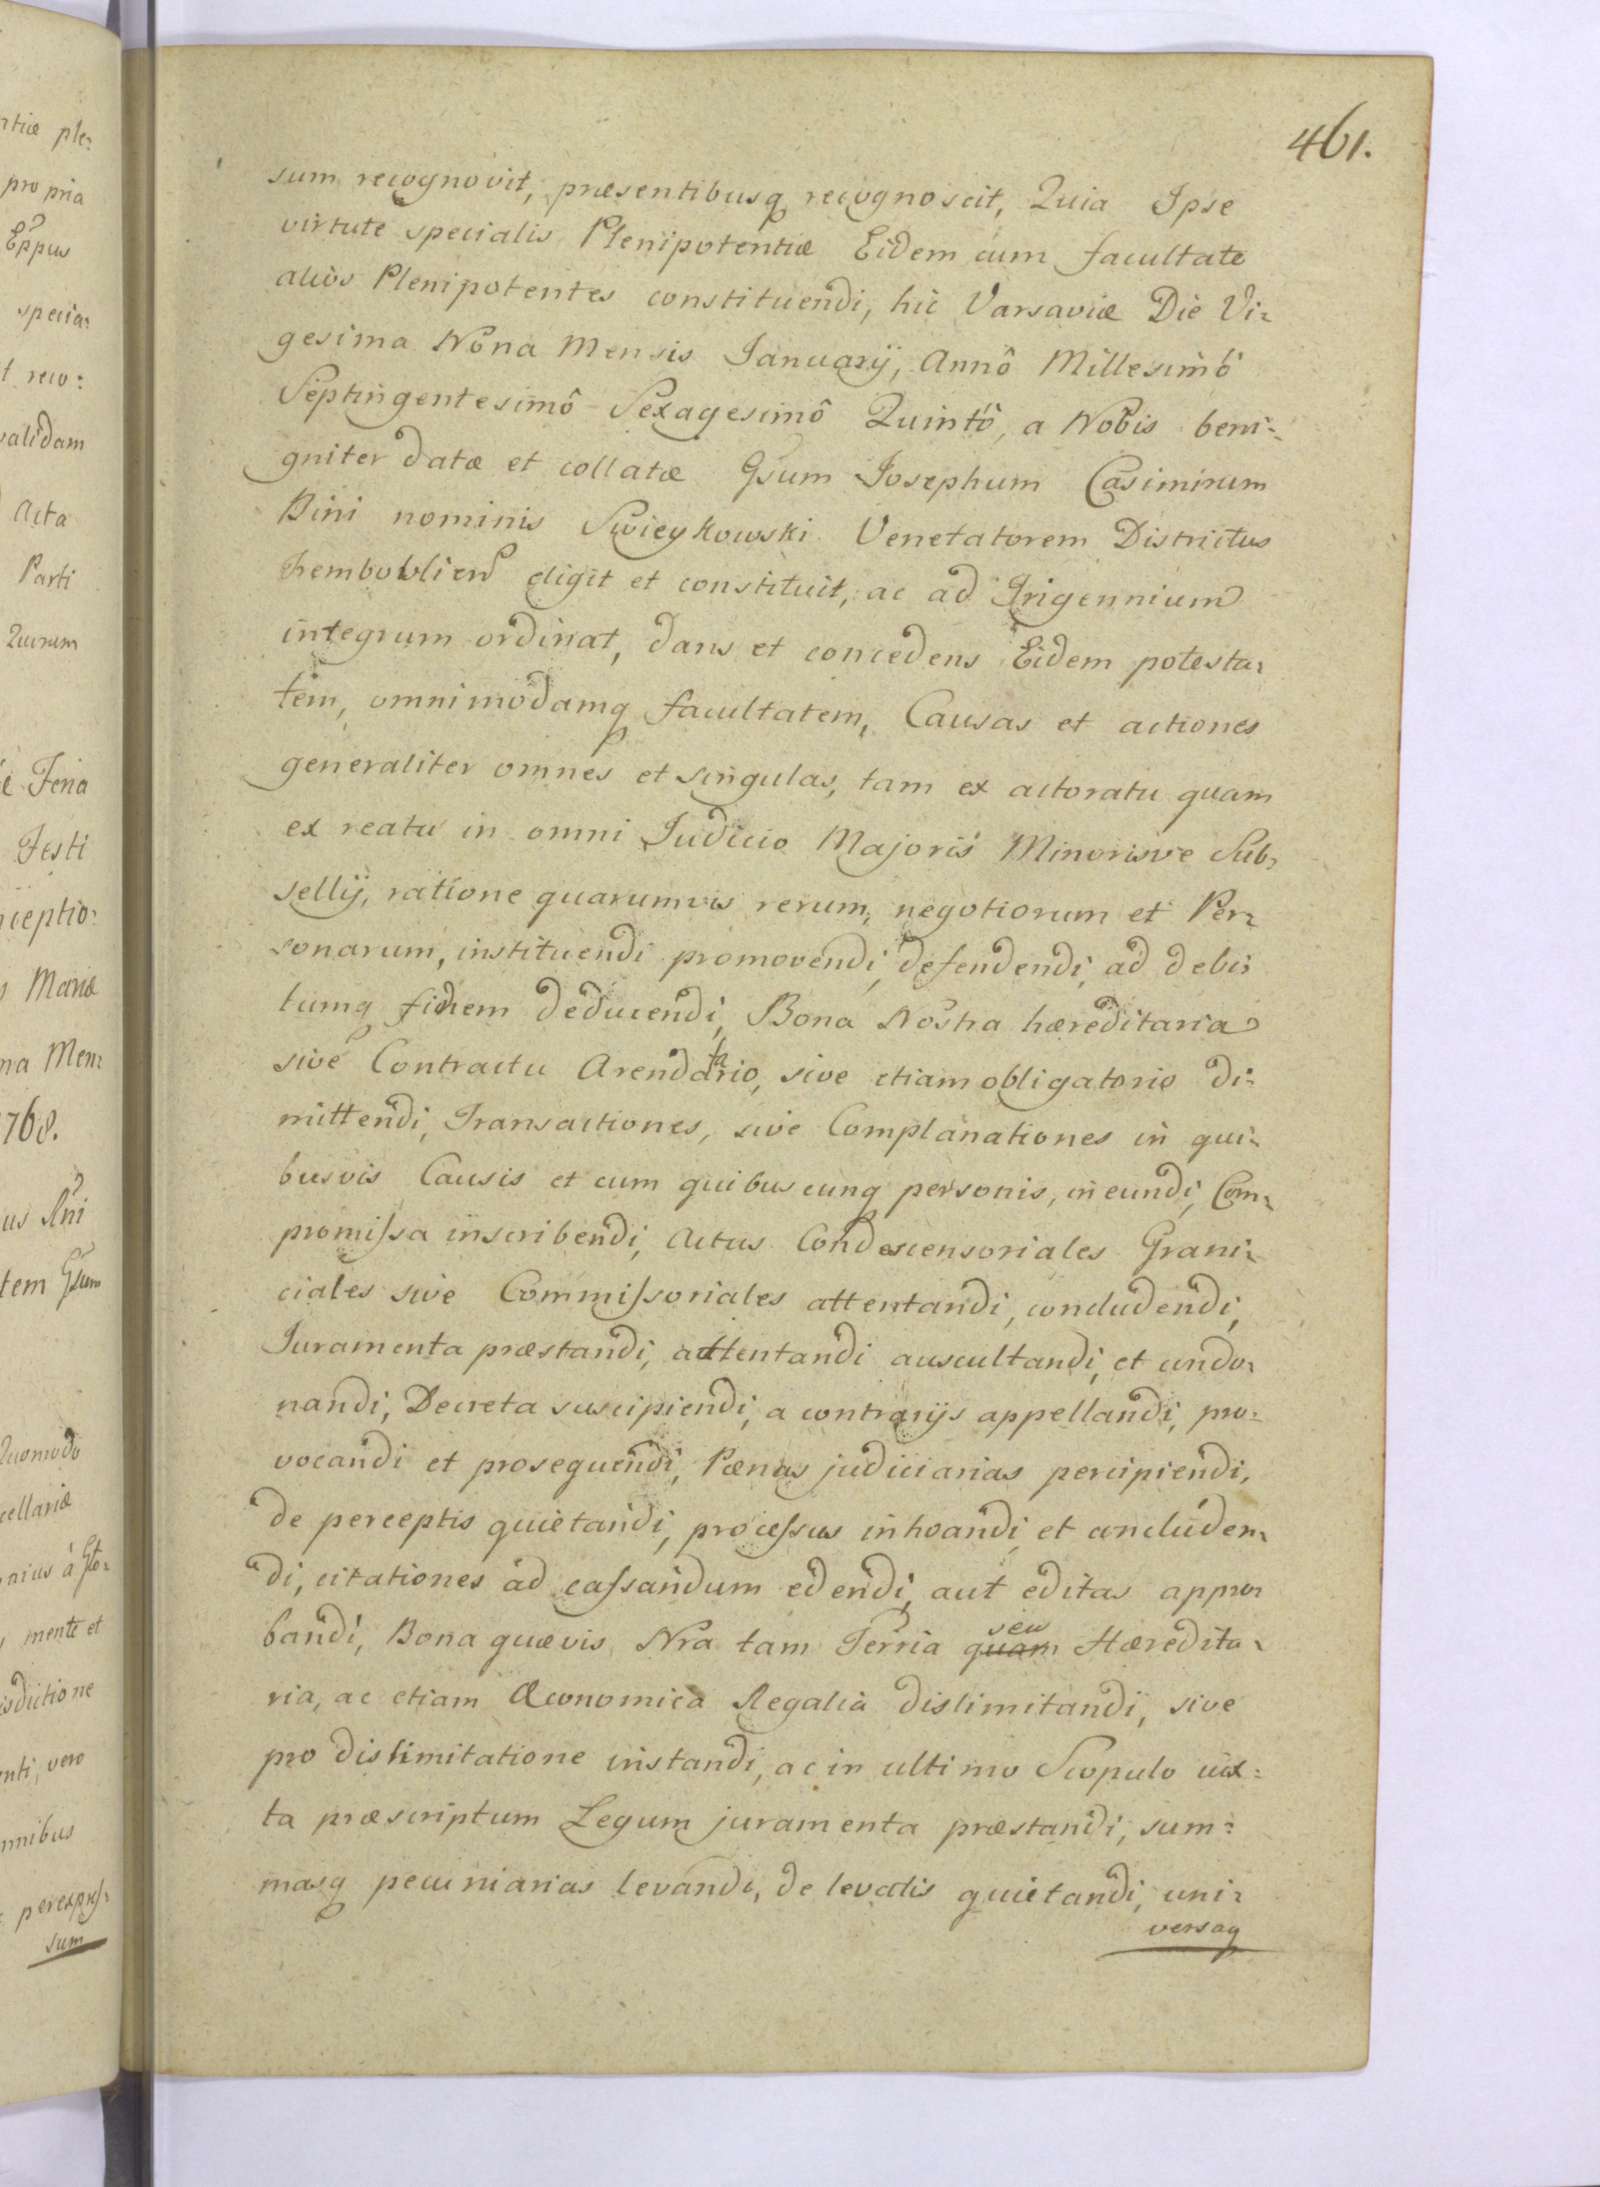 461.
sum recognovit, præsentibusq recognoscit, Quia Ipse
virtute specialis Plenipotentiæ Eidem cum facultate
alios Plenipotentes constituendi, hic Varsaviæ Die Vi=
gesima Nona Mensis Januarÿ, Annô Millesimô
Septingentesimô Sexagesimô Quintô, a Nobis beni=
gniter datæ et collatæ Gsum Josephum Casimirum
Bini nominis Swieykowski Venatorem Districtus
Trembovlien eligit et constituit, ac ad Trigennium
integrum ordinat, dans et concedens Eidem potesta=
tem, omnimodamq facultatem, Causas et actiones
generaliter omnes et singulas, tam ex actoratu quam
ex reatu in omni Judicio Majoris Minorisve Sub=
sellÿ, ratione quarumvis rerum, negotiorum et Per=
sonarum, instituendi promovendi, defendendi, ad debi=
tumq finem deducendi, Bona Nostra hæreditaria
sive Contractu Arendatario, sive etiam obligatorio di=
mittendi, Transactiones, sive Complanationes in qui=
busvis Causis et cum quibuscunq personis, ineundi, Com=
promissa inscribendi, Actus Condescensoriales Grani=
ciales sive Commissoriales attentandi, concludendi,
Juramenta præstandi, attentandi auscultandi, et condo=
nandi, Decreta suscipiendi, a contrarÿs appellandi, pro=
vocandi et prosequendi, Pænas judiciarias percipiendi,
de perceptis quietandi, processus inhoandi et concluden=
di, citationes ad cassandum edendi, aut editas appro=
bandi, Bona quævis Nra tam Terria quam seu Hæredita=
ria, ac etiam Œconomica Regalia dislimitandi, sive
pro dislimitatione instandi, ac in ultimo Scopulo iux=
ta præscriptum Legum juramenta præstandi, sum=
masq pecuniarias levandi, de levatis quietandi, uni=
versaq